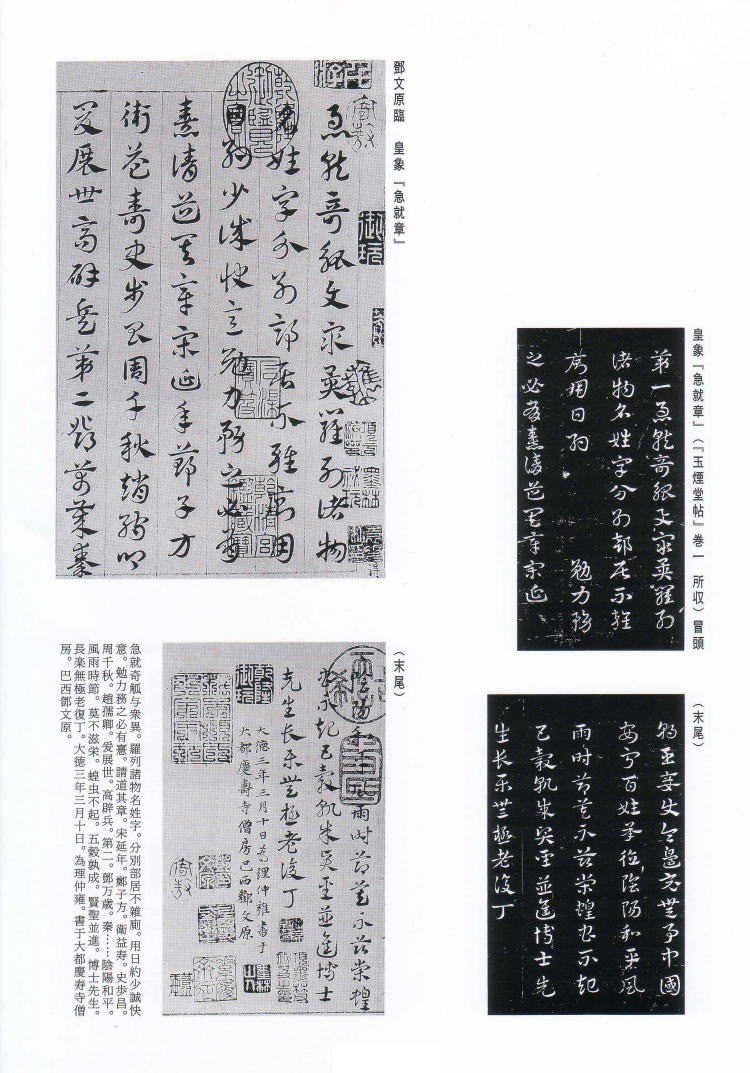 皇象『急就章』(『玉煙堂帖』巻一　所収)冒頭
第一急就奇觚与衆異羅列
諸物名姓字分別部居不雜
厠用日約　勉力務
之必有憙請道其章宋延
(末尾)
朝臣妾使令邊竟無事中國
安寧百姓承德陰陽和平風
雨時節莫不茲榮蝗虫不起
五穀孰成賢聖並進博士先
生長樂無極老復丁
鄧文原臨　皇象『急就章』
急就奇觚与衆異羅列諸物
名姓字分別部居不雜厠用
日約少誠快意勉力務之必有
憙請道其章宋延年鄭子方
衛益壽史步昌周千秋趙孺卿
爰展世高辟兵第二鄧萬歲秦
(末尾)
陰陽和平風雨時節莫不茲榮蝗
虫不起五穀孰成賢聖並進博士
先生長樂無極老復丁
大德三年三月十日為理仲雍書于
大都慶壽寺僧房巴西鄧文原
急就奇觚与衆異。羅列諸物名姓字。分別部居不雜厠。用日約少誠快
意。勉力務之必有憙。請道其章。宋延年。鄭子方。衛益寿。史歩昌。
周千秋。趙孺卿。爰展世。高辟兵。第二。鄧万歳。秦……陰陽和平。
風雨時節。莫不滋栄。蝗虫不起。五穀孰成。賢聖並進。博士先生。
長楽無極老復丁。大徳三年三月十日。為理仲雍。書于大都慶寿寺僧
房。巴西鄧文原。